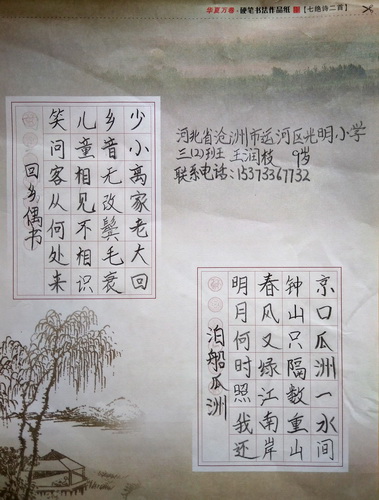 华夏万卷·硬笔书法作品纸 【七绝诗二首】
河北省沧洲市运河区光明小学
三(2)班 王润枝 9岁
联系电话:15373367732
少小离家老大回
乡音无改鬓毛衰
儿童相见不相识
笑问客从何处来
回乡偶书
京口瓜洲一水间
钟山只隔数重山
春风又绿江南岸
明月何时照我还
泊船瓜洲